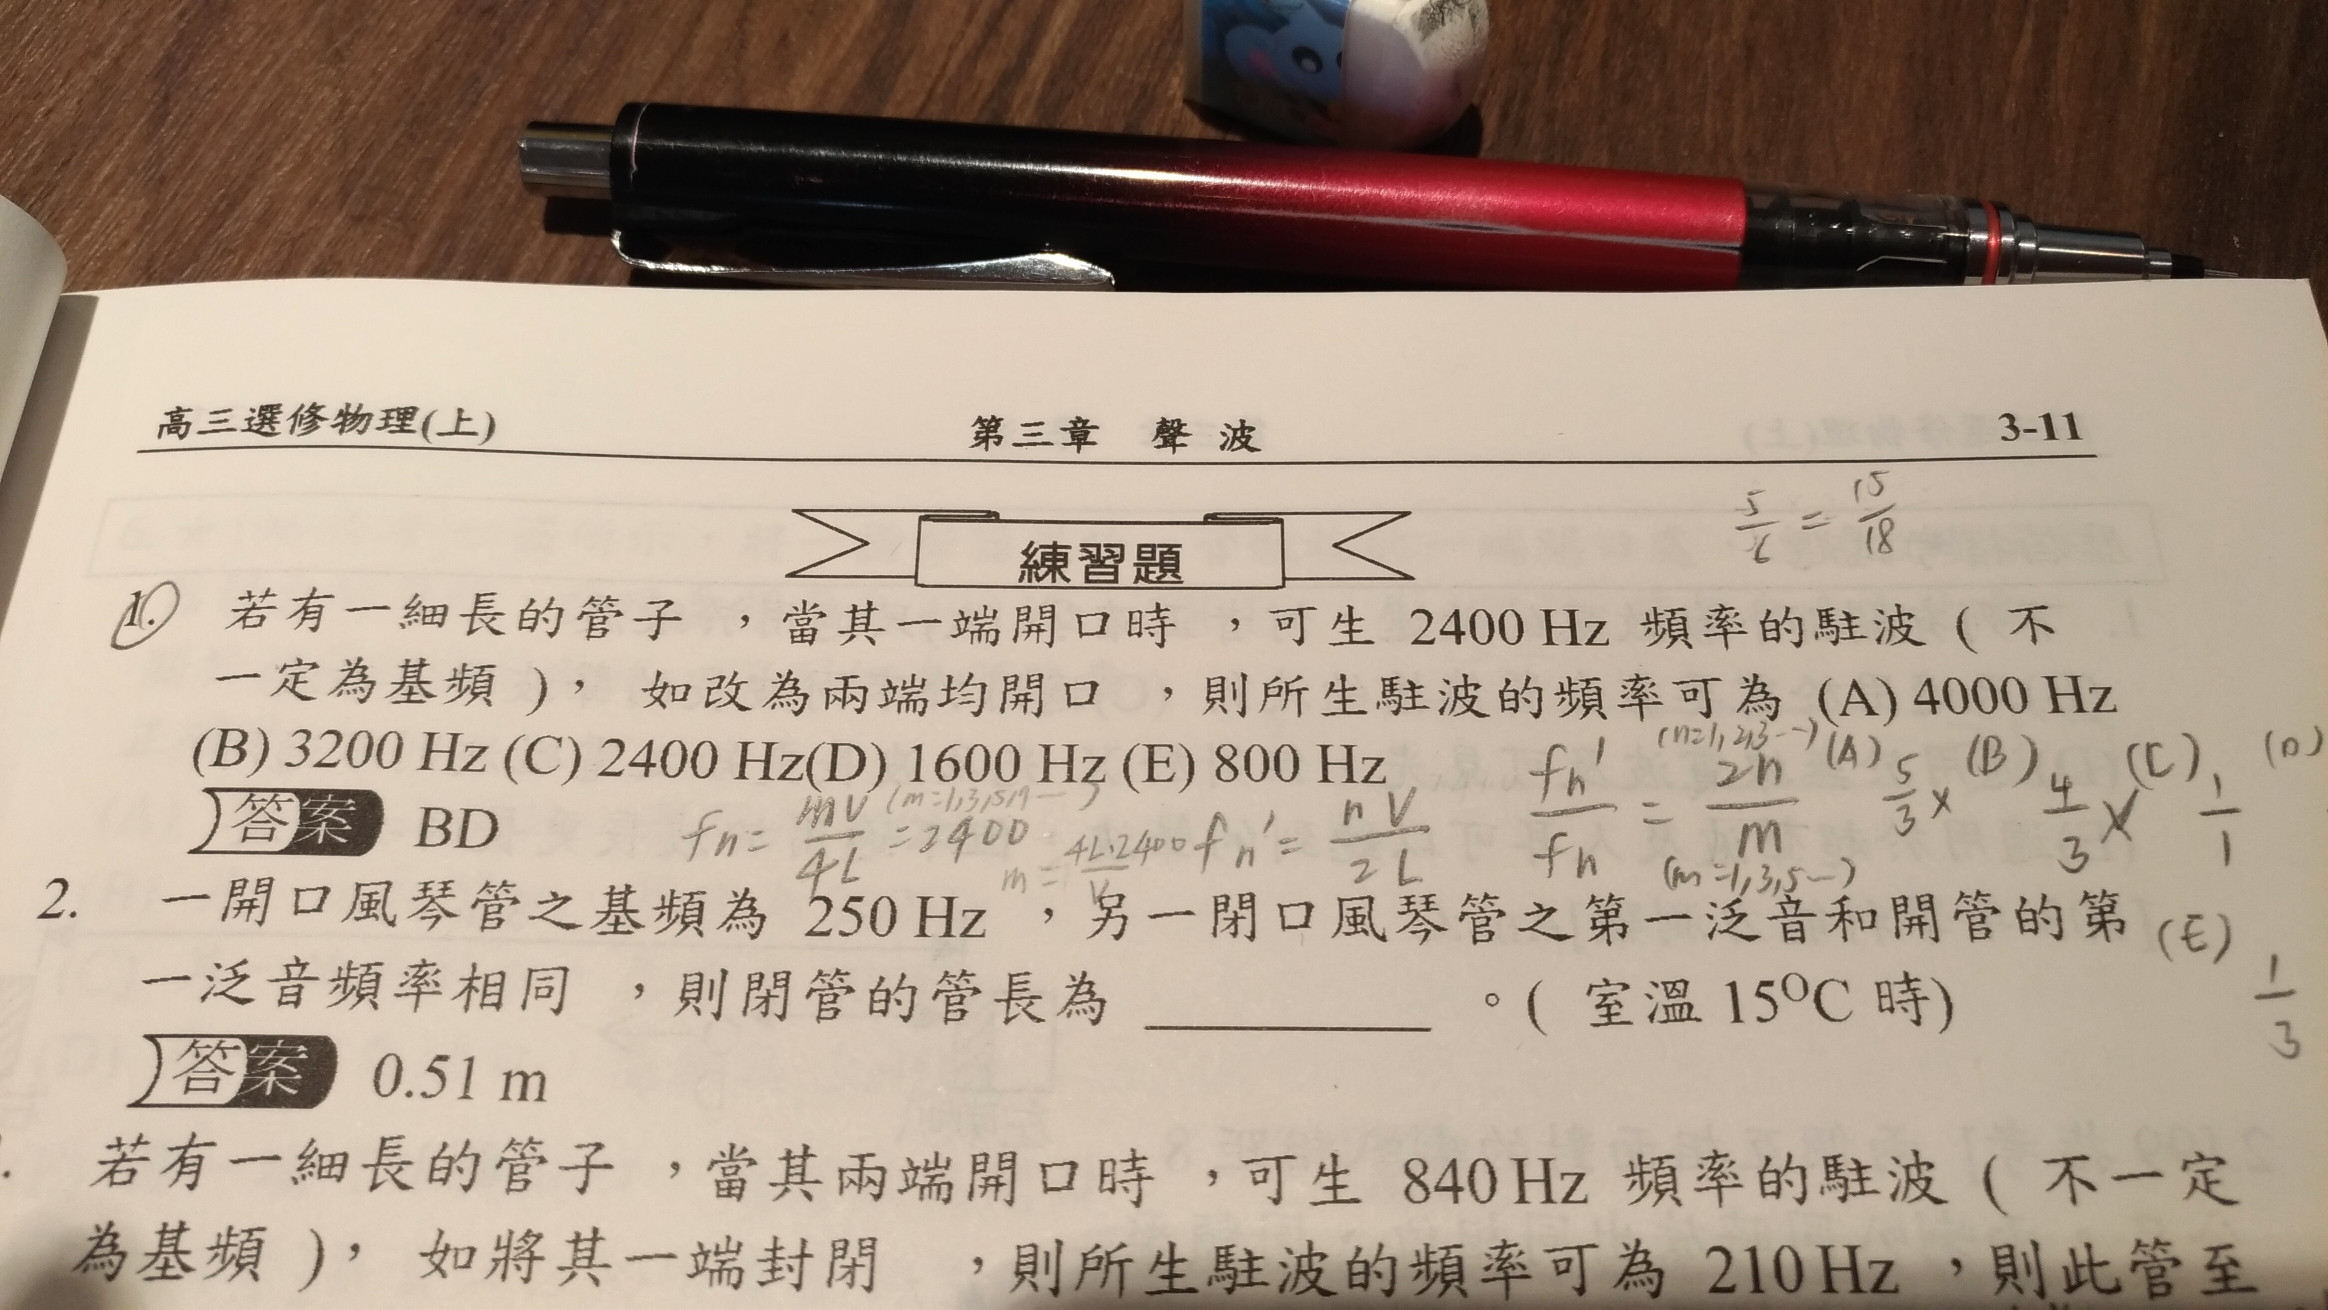 高三選修物理(上) 第三章 聲波 3-11
5/6 = 15/18
練習題
1. 若有一細長的管子，當其一端開口時，可生 2400 Hz 頻率的駐波 ( 不
一定為基頻 )， 如改為兩端均開口，則所生駐波的頻率可為 (A) 4000 Hz
(B) 3200 Hz (C) 2400 Hz(D) 1600 Hz (E) 800 Hz
答案 BD
fn = mV/4L (m=1,3,5,7…) = 2400
m = 4L·2400/V
fn' = nV/2L
fn'/fn = 2n/m (n=1,2,3…) (m=1,3,5…)
(A) 5/3 × (B) 4/3 × (C) 1/1 (D)
(E) 1/3
2. 一開口風琴管之基頻為 250 Hz，另一閉口風琴管之第一泛音和開管的第
一泛音頻率相同，則閉管的管長為 ________。( 室溫 15°C 時)
答案 0.51 m
若有一細長的管子，當其兩端開口時，可生 840 Hz 頻率的駐波 ( 不一定
為基頻 )， 如將其一端封閉，則所生駐波的頻率可為 210 Hz，則此管至